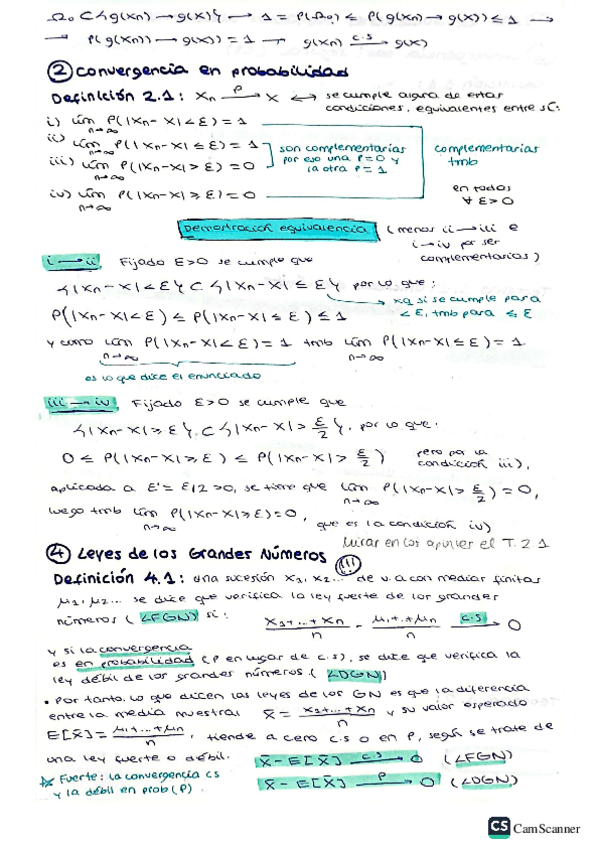 Ω₀ ⊂ {g(Xn) → g(X)} → 1 = P(Ω₀) ≤ P(g(Xn) → g(X)) ≤ 1 →
→ P(g(Xn) → g(X)) = 1 → g(Xn) —c.s→ g(X)
② Convergencia en probabilidad
Definición 2.1: Xn —P→ X ↔ se cumple alguna de estas
condiciones, equivalentes entre sí:
i) lím n→∞ P(|Xn - X| < ε) = 1
ii) lím n→∞ P(|Xn - X| ≤ ε) = 1
iii) lím n→∞ P(|Xn - X| > ε) = 0
son complementarias
por eso una P=0 y
la otra P=1
iv) lím n→∞ P(|Xn - X| ≥ ε) = 0
complementarias
tmb
en todos
∀ ε > 0
Demostración equivalencia (menos ii → iii e
i → iv por ser
complementarias)
i → ii, Fijado ε>0 se cumple que
{|Xn - X| < ε} ⊂ {|Xn - X| ≤ ε} por lo que:
→ xq si se cumple para
< ε, tmb para ≤ ε
P(|Xn - X| < ε) ≤ P(|Xn - X| ≤ ε) ≤ 1
y como lím n→∞ P(|Xn - X| < ε) = 1 tmb lím n→∞ P(|Xn - X| ≤ ε) = 1
es lo que dice el enunciado
iii → iv, Fijado ε>0 se cumple que
{|Xn - X| ≥ ε} ⊂ {|Xn - X| > ε/2}, por lo que:
0 ≤ P(|Xn - X| ≥ ε) ≤ P(|Xn - X| > ε/2) pero por la
condición iii),
aplicada a ε' = ε/2 > 0, se tiene que lím n→∞ P(|Xn - X| > ε/2) = 0,
luego tmb lím n→∞ P(|Xn - X| ≥ ε) = 0, que es la condición iv)
Mirar en los apuntes el T.2.1
④ Leyes de los Grandes Números (!!!)
Definición 4.1: una sucesión X₁, X₂... de v.a con medias finitas
μ₁, μ₂... se dice que verifica la ley fuerte de los grandes
números (LFGN) si: X₁+...+Xn / n - μ₁+...+μn / n —c.s→ 0
y si la convergencia
es en probabilidad (P en lugar de c.s), se dice que verifica la
ley débil de los grandes números (LDGN)
• Por tanto, lo que dicen las leyes de los GN es que la diferencia
entre la media muestral X̄ = X₁+...+Xn / n y su valor esperado
E[X̄] = μ₁+...+μn / n, tiende a cero c.s o en P, según se trate de
una ley fuerte o débil.
X̄ - E[X̄] —c.s→ 0 (LFGN)
☆ Fuerte: la convergencia cs
y la débil en prob (P).
X̄ - E[X̄] —P→ 0 (LDGN)
CS CamScanner